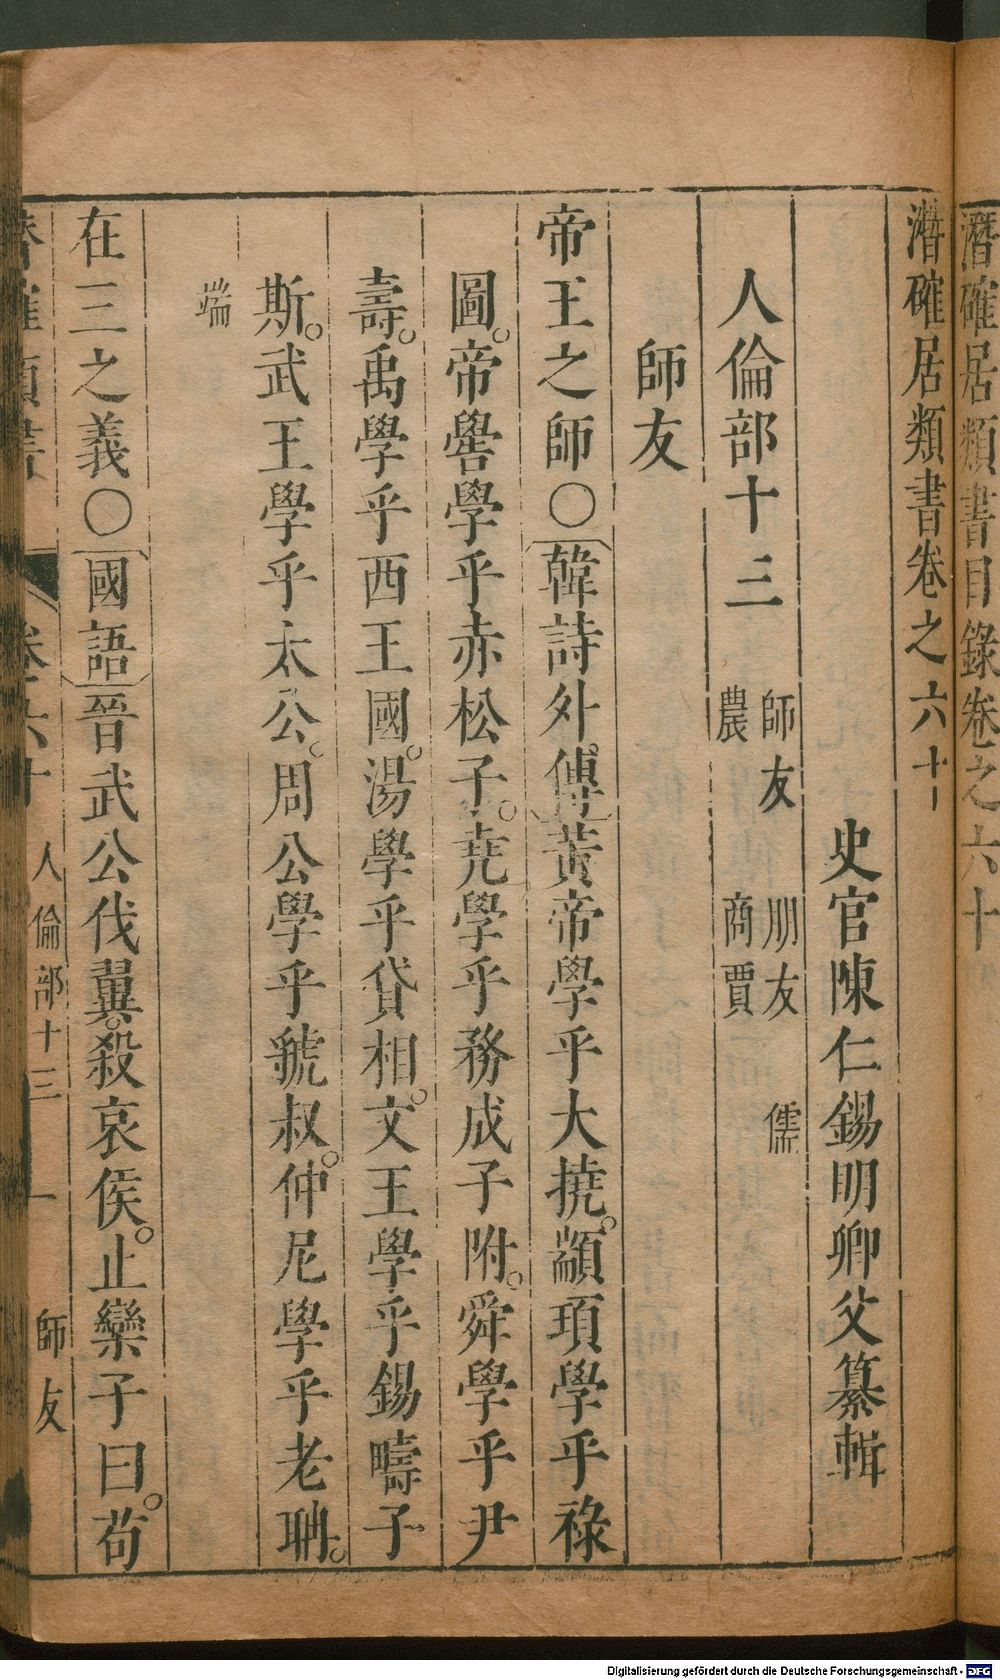 潛確居類書目錄卷之六十
潛確居類書卷之六十
史官陳仁錫明卿父纂輯
人倫部十三 師友 朋友 儒
農 商賈
師友
帝王之師○韓詩外傳黃帝學乎大撓。顓頊學乎祿
圖。帝嚳學乎赤松子。堯學乎務成子附。舜學乎尹
壽。禹學乎西王國。湯學乎貸相。文王學乎錫疇子
斯。武王學乎太公。周公學乎虢叔。仲尼學乎老聃。
端
在三之義○國語晉武公伐翼。殺哀侯。止欒子曰。苟
人倫部十三 一 師友
Digitalisierung gefördert durch die Deutsche Forschungsgemeinschaft - DFG